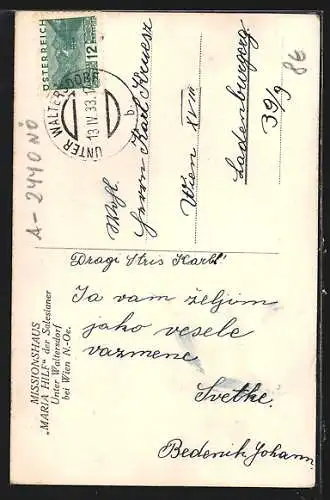 ÖSTERREICH
12
UNTER WALTERSDORF
13.IV.33.1
b
A-2440 NÖ
MISSIONSHAUS
„MARIA HILF“ der Salesianer
Unter Waltersdorf
bei Wien N.-Oe.
Herrn Karl
Wien XVIII
Ladenburgerg
39/9
86
Dragi Stric Karl!
Ja vam željim
jako vesele
vazmene
Svetke.
Bedenik Johann